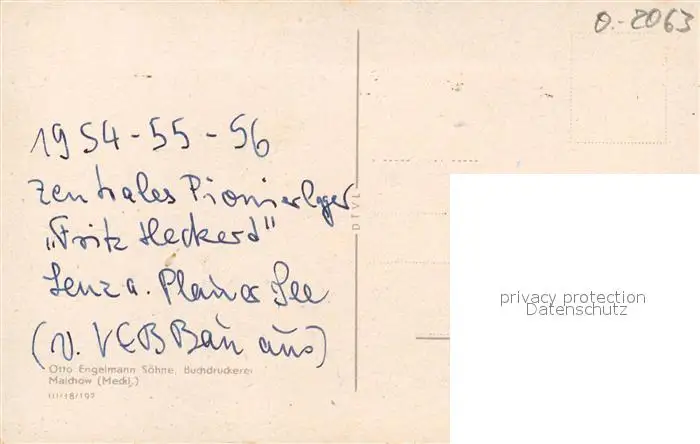 0.-2063
1954-55-56
Zentrales Pionierlager
"Fritz Heckerd"
Lenz a. Plauer See
(v. VEB Bau aus)
DTVL
Otto Engelmann Söhne, Buchdruckerei
Malchow (Meckl.)
III/18/197
privacy protection
Datenschutz